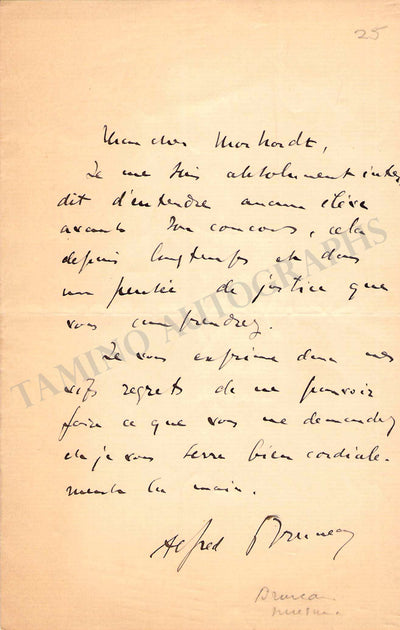 25
Mon cher Morhardt,
Je me suis absolument inter
dit d'entendre aucun élève
avant son concours, cela
depuis longtemps et dans
une pensée de justice que
vous comprendrez.
Je vous exprime donc mes
vifs regrets de ne pouvoir
faire ce que vous me demandez
et je vous serre bien cordiale-
ment la main.
Alfred Bruneau
Bruneau
TAMINO AUTOGRAPHS